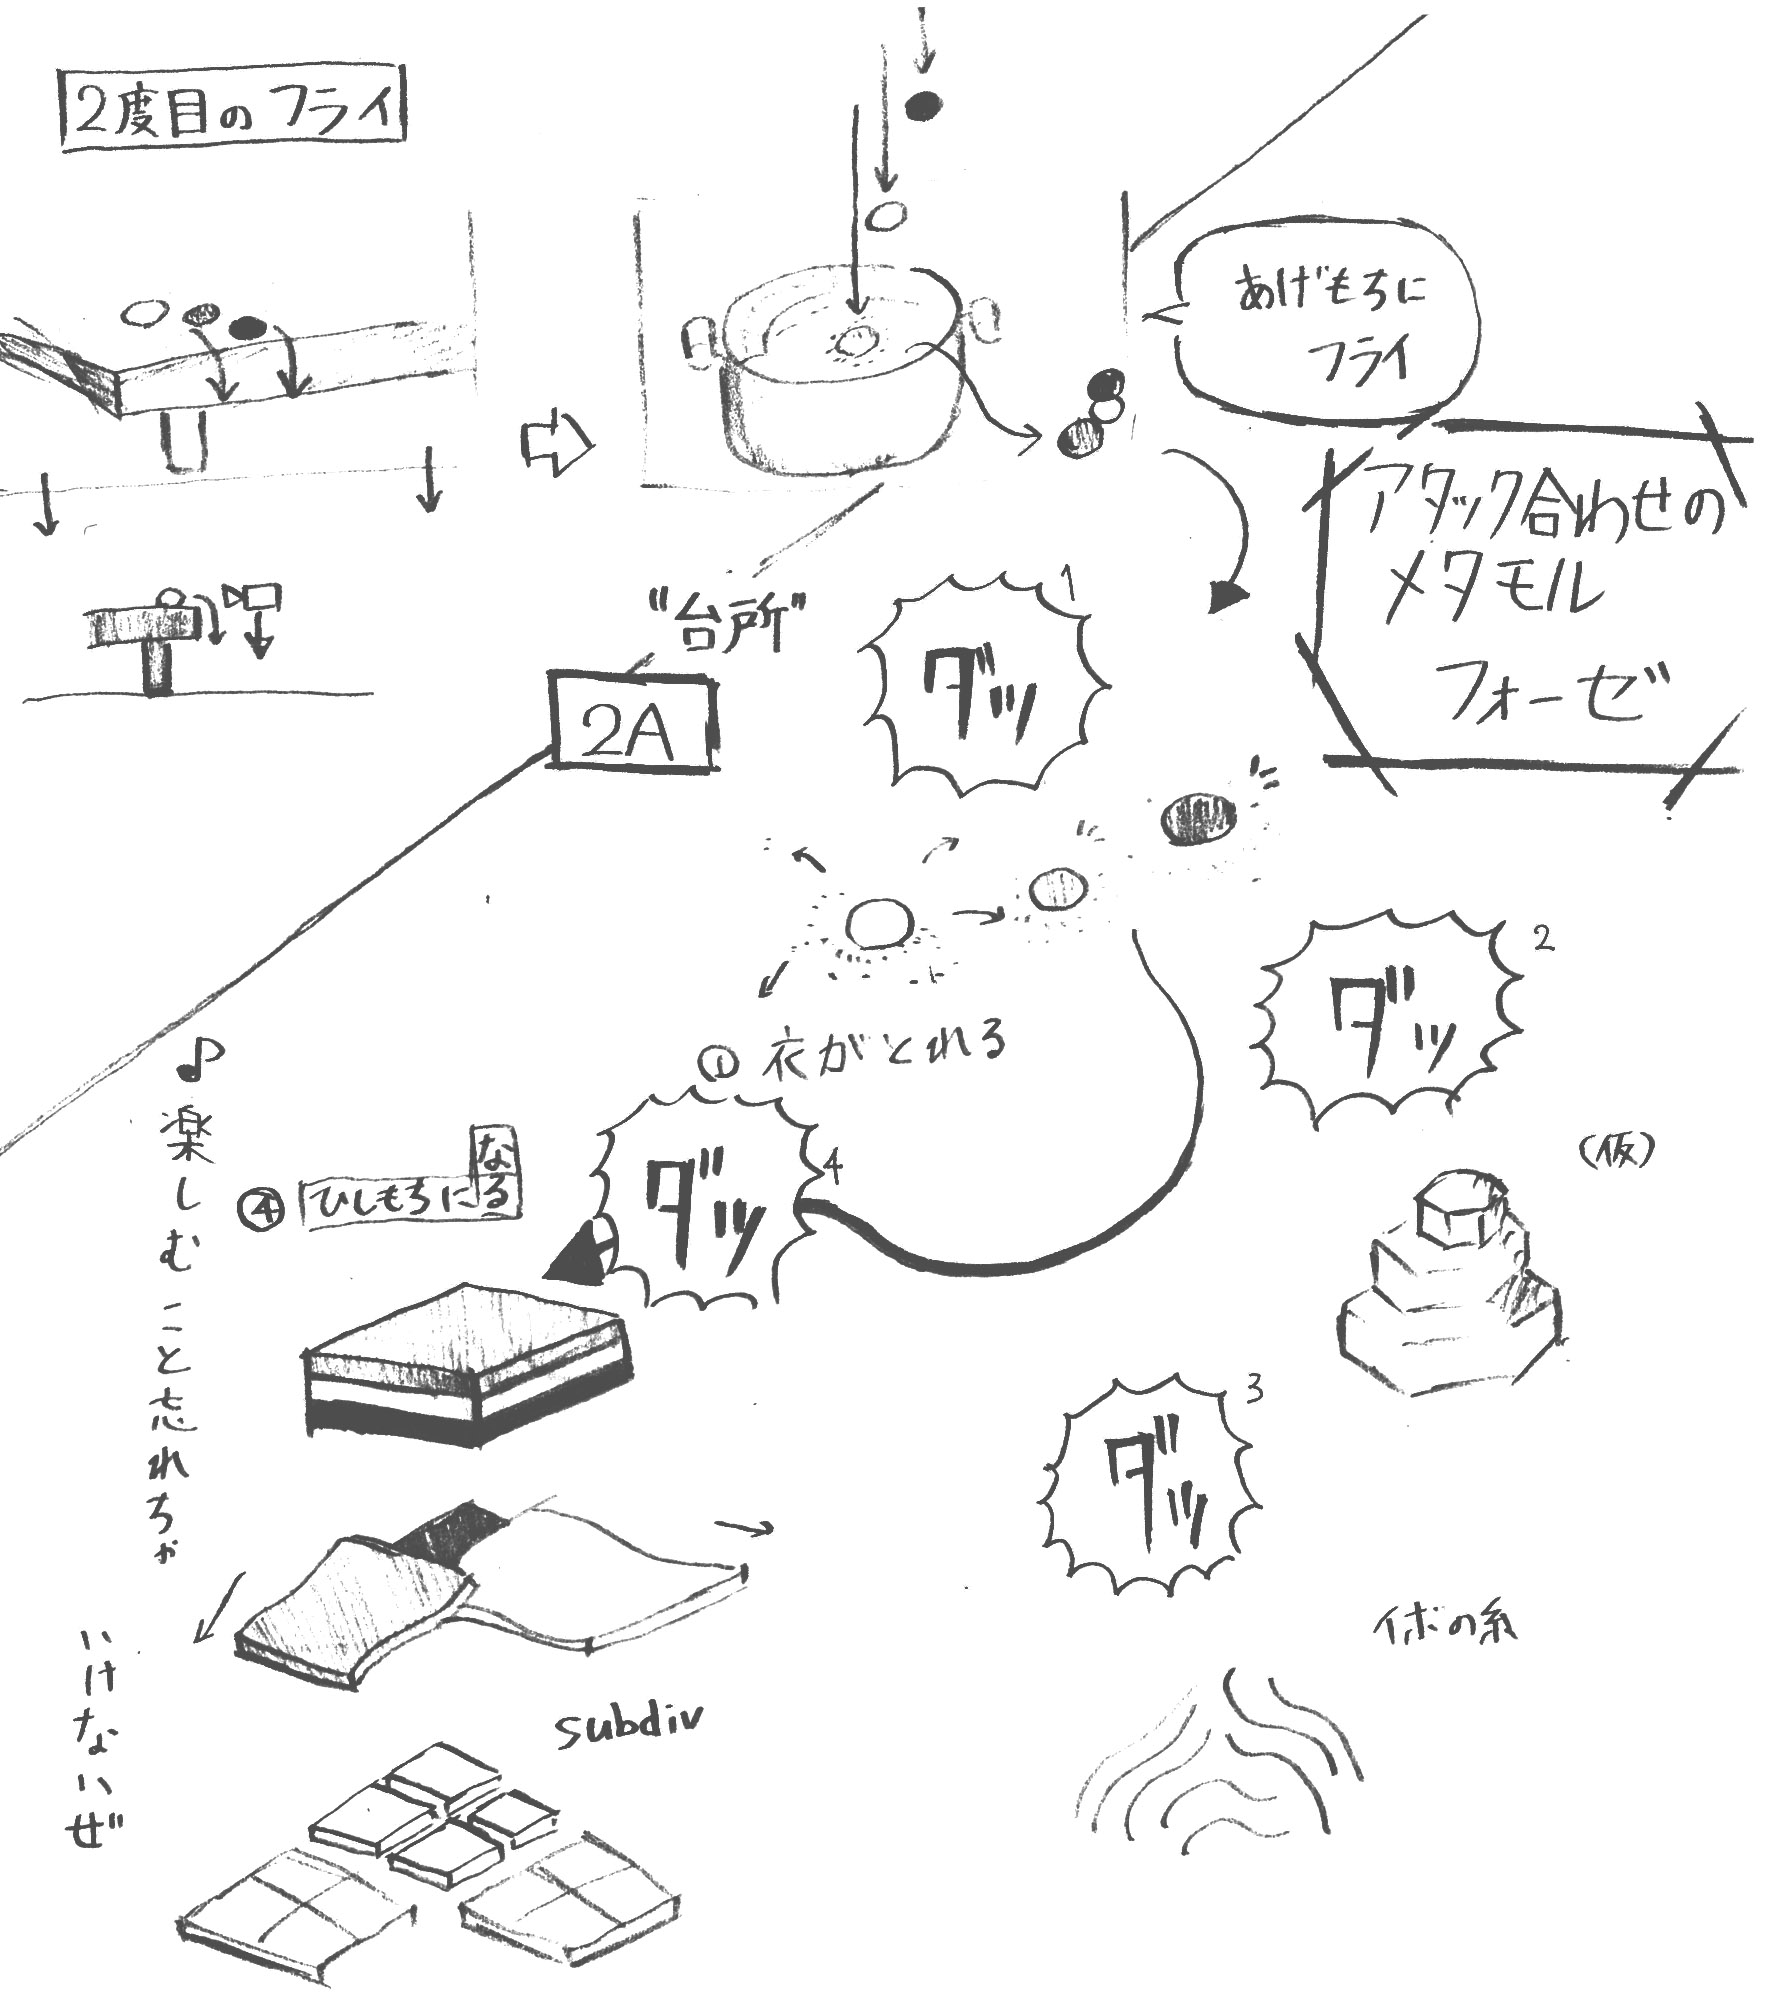 2度目のフライ
あげもちに
フライ
アタック合わせの
メタモル
フォーゼ
"台所"
2A
ダッ
1
ダッ
2
① 衣がとれる
(仮)
ダッ
4
④ ひしもちになる
ダッ
3
イボの糸
subdiv
♪楽しむこと忘れちゃ
いけないぜ